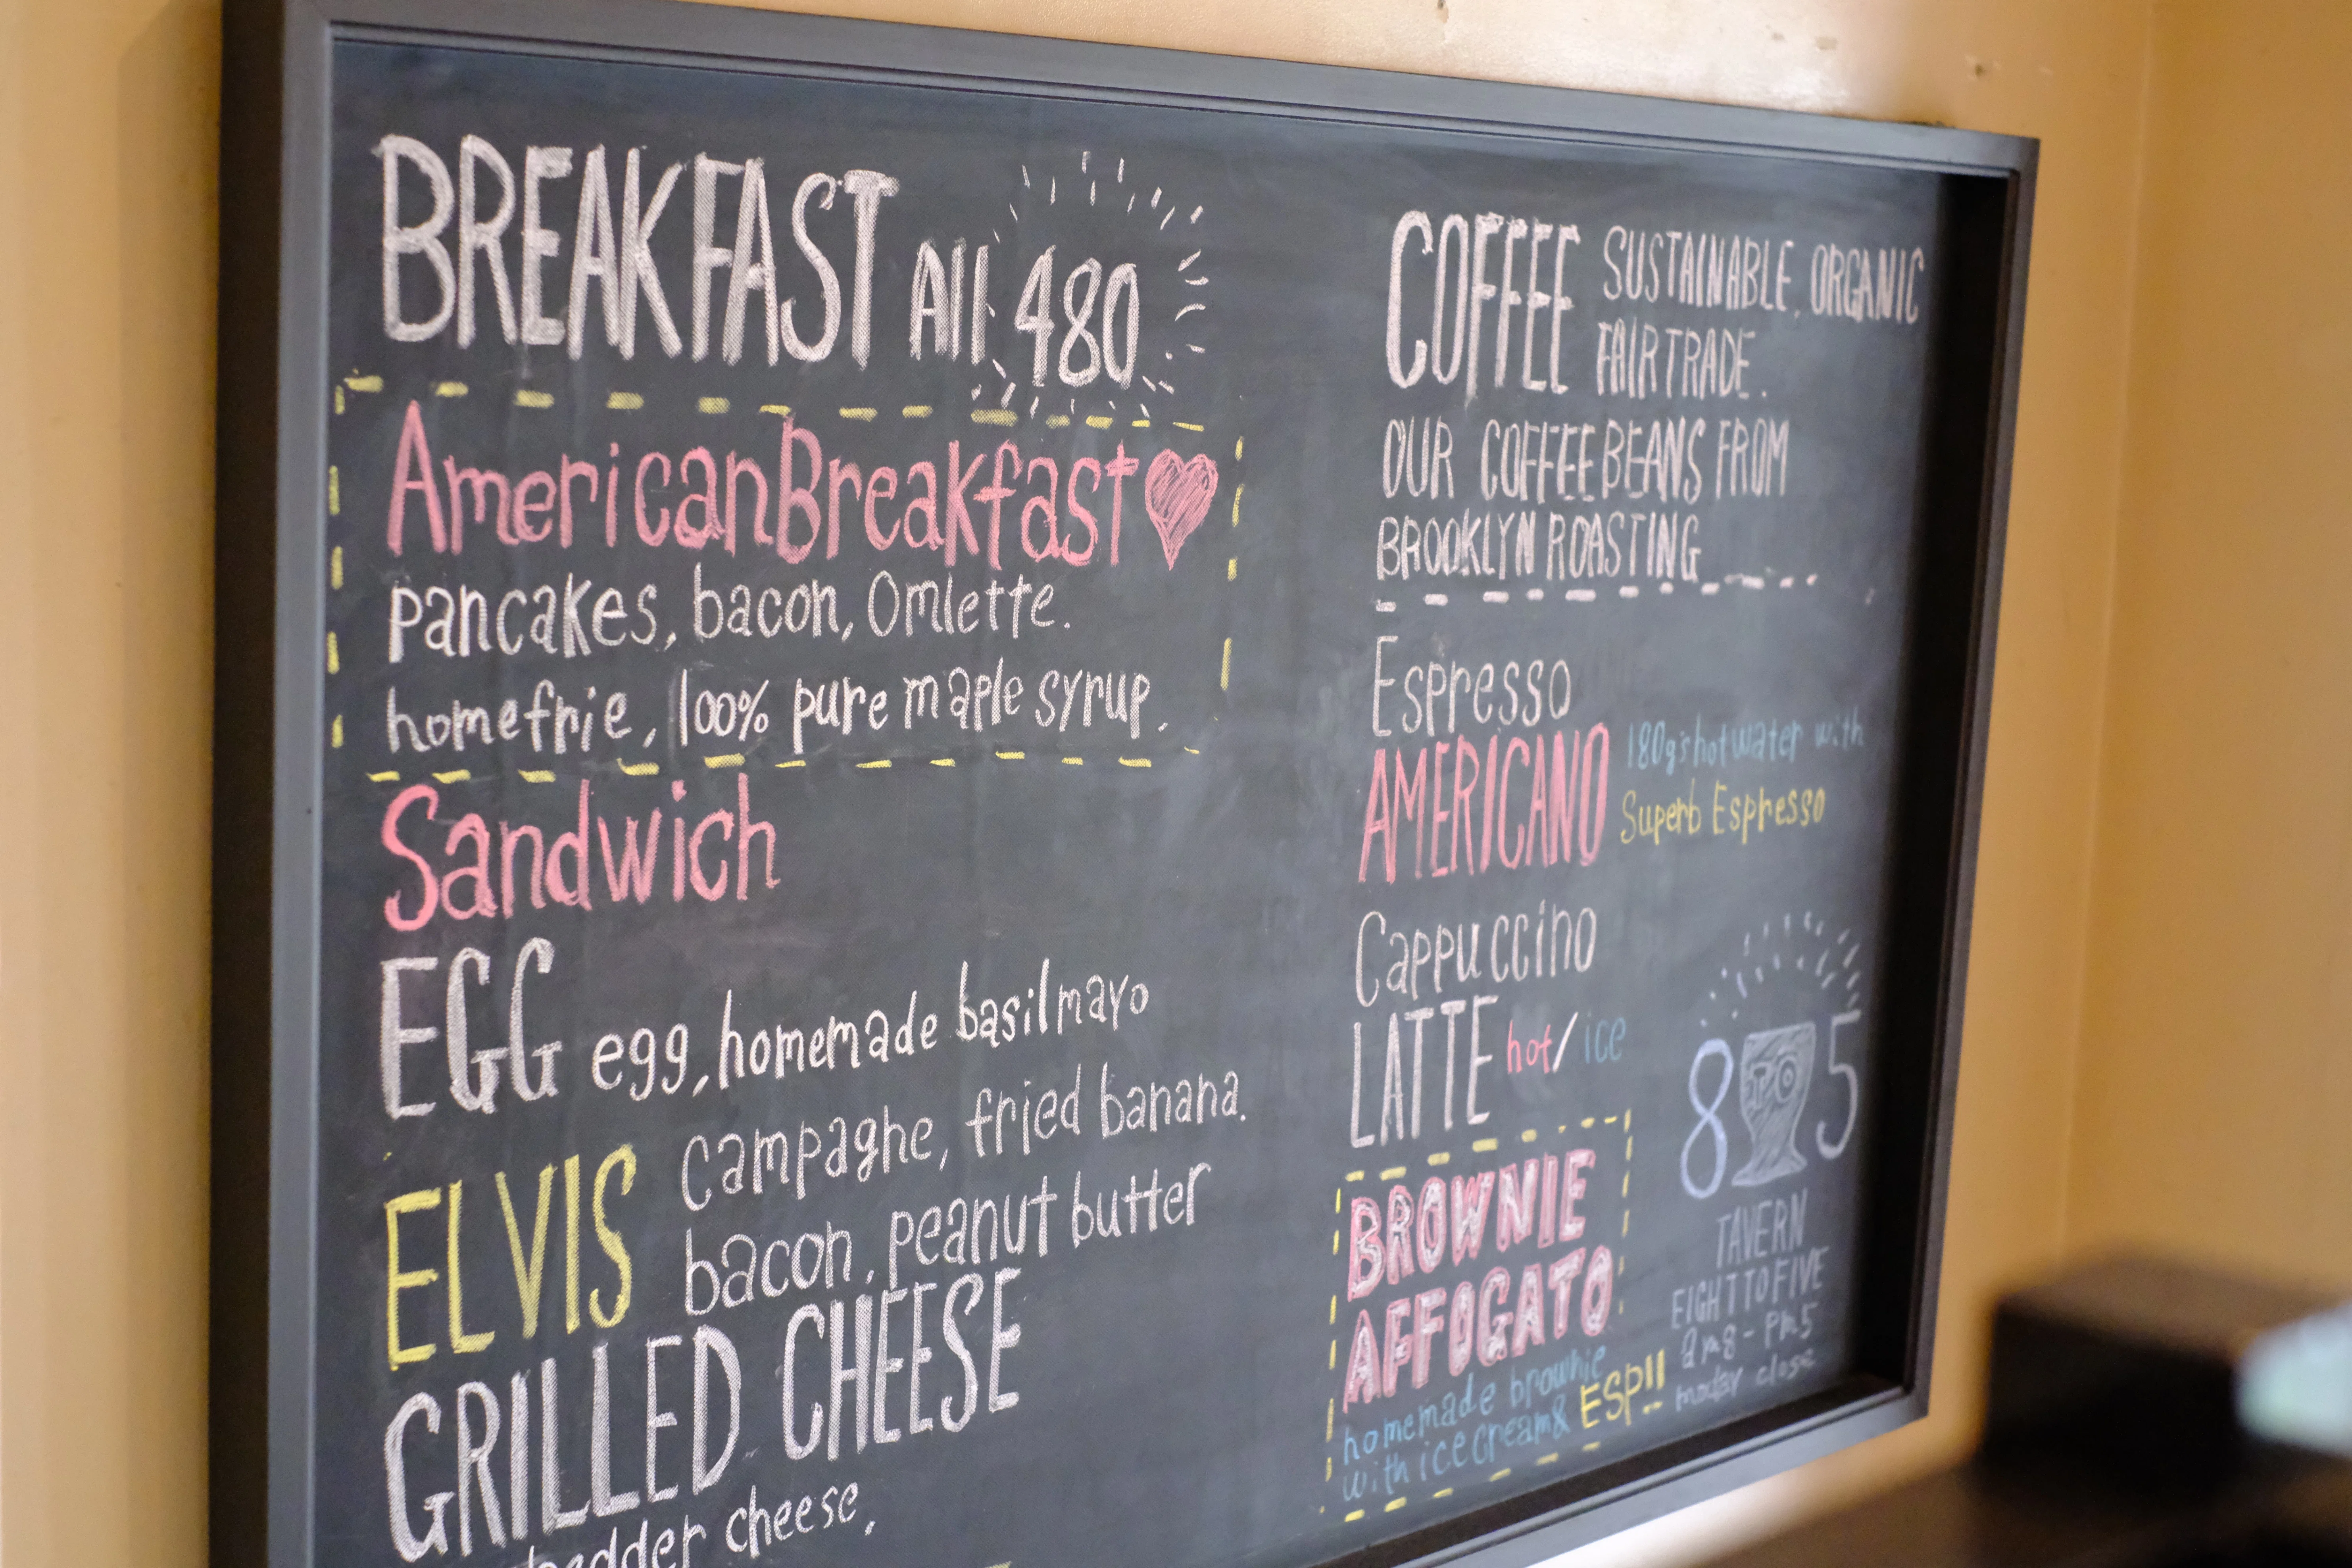 BREAKFAST All 480
AmericanBreakfast
pancakes, bacon, Omlette.
homefrie, 100% pure maple syrup.
Sandwich
EGG egg, homemade basil mayo
ELVIS campaghe, fried banana.
bacon, peanut butter
GRILLED CHEESE
hedder cheese,
COFFEE SUSTAINABLE, ORGANIC
FAIR TRADE.
OUR COFFEE BEANS FROM
BROOKLYN ROASTING
Espresso
AMERICANO 180g's hot water with
Superb Espresso
Cappuccino
LATTE hot/ice
BROWNIE
AFFOGATO
homemade brownie
with ice cream& ESP!!
8 TO 5
TAVERN
EIGHT TO FIVE
am8-pm5
close